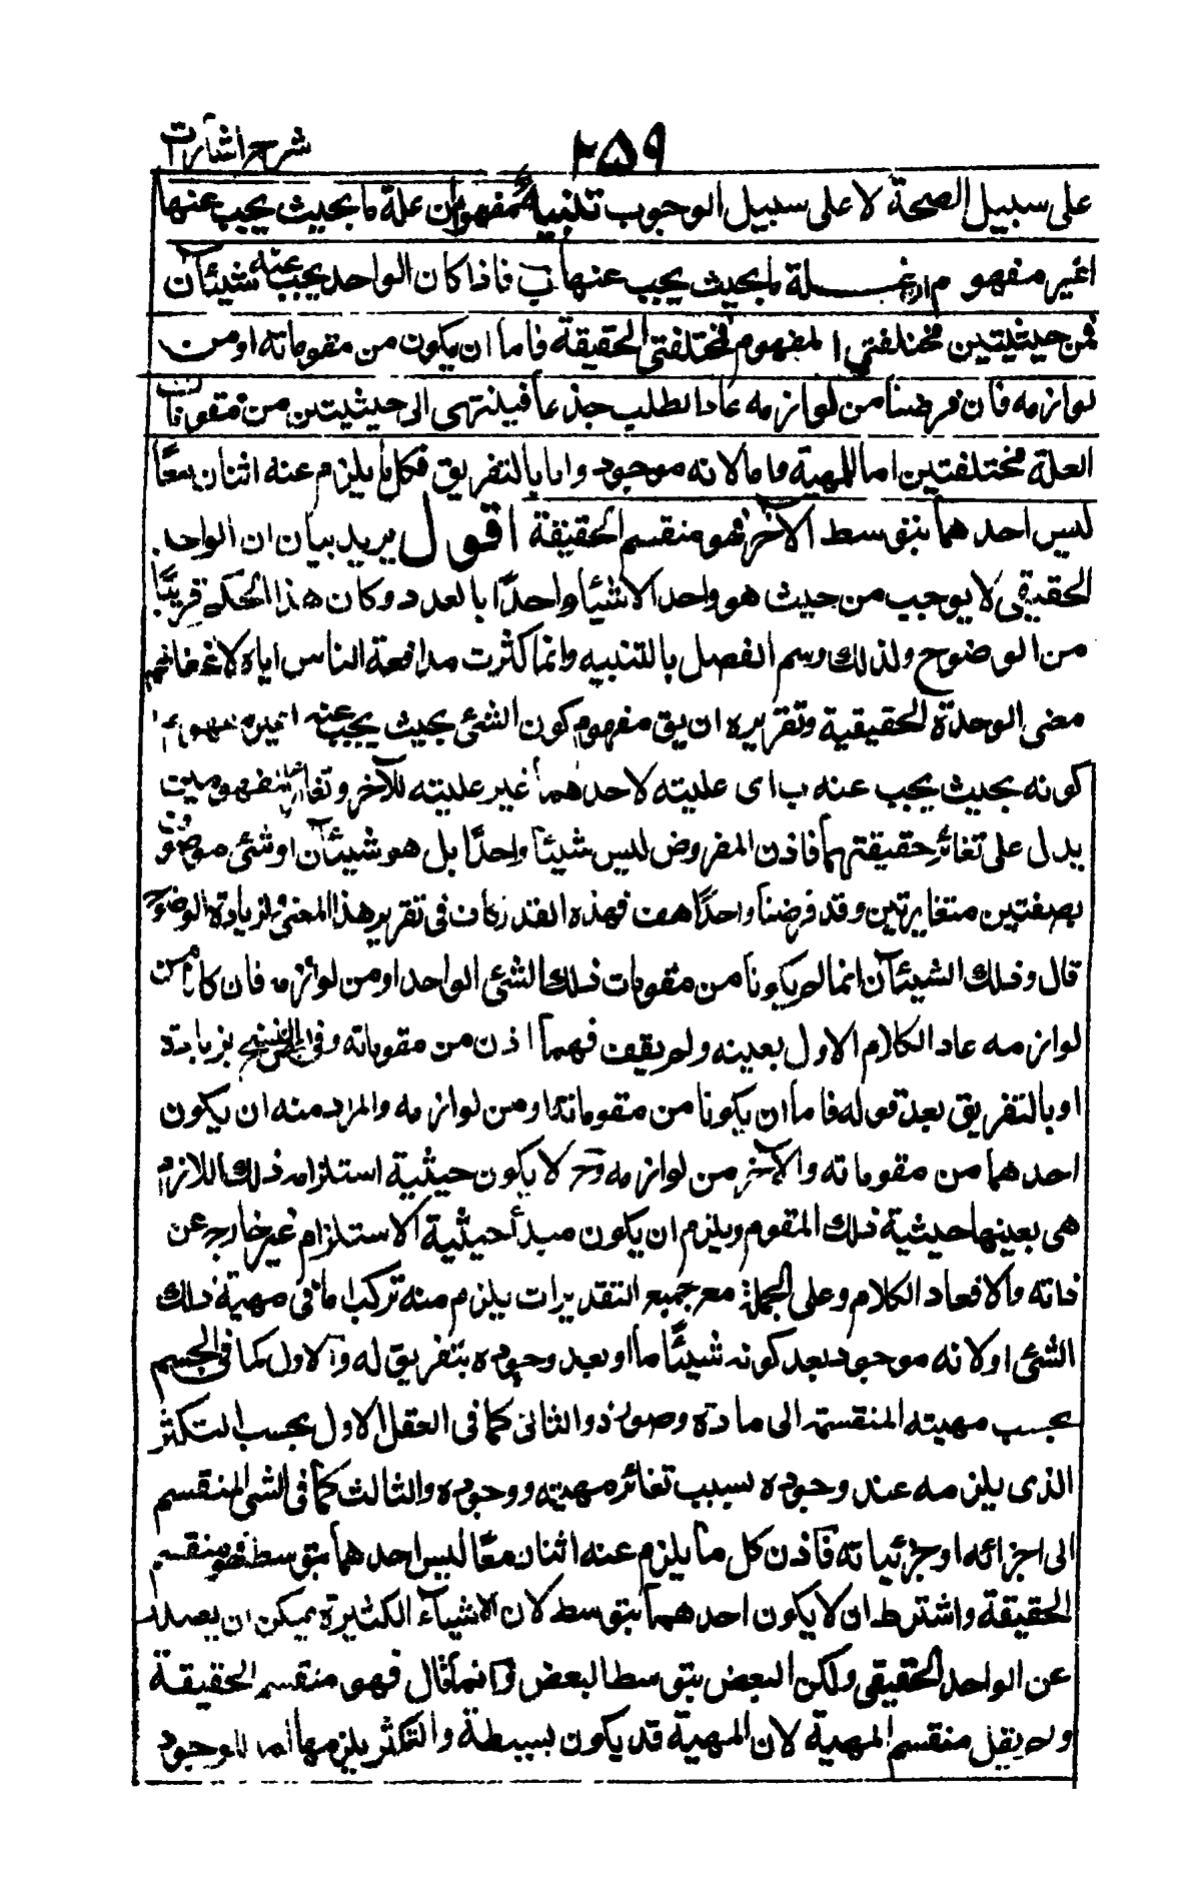 شرح اشارات
٢٥٩
على سبيل الصحة لا على سبيل الوجوب تنبيه مفهوم ان علة ما بحيث يجب عنها
ا غير مفهوم ان علة ما بحيث يجب عنها ب فاذا كان الواحد يجب عنه شيئان
فمن حيثيتين مختلفتي المفهوم مختلفتي الحقيقة فاما ان يكون من مقوماته او من
لوازمه فان فرضنا من لوازمه عاد الطلب جذعا فينتهى الى حيثيتين من مقومات
العلة مختلفتين اما للمهية واما لانه موجود واما بالتفريق فكل ما يلزم عنه اثنان معًا
ليس احدهما بتوسط الآخر فهو منقسم الحقيقة اقول يريد بيان ان الواحد
الحقيقى لا يوجب من حيث هو واحد الا شيئا واحدًا بالعدد وكان هذا الحكم قريبًا
من الوضوح ولذلك وسم الفصل بالتنبيه وانما كثرت مدافعة الناس اياه لاغفالهم
معنى الوحدة الحقيقية وتقريره ان يق مفهوم كون الشئ بحيث يجب عنه ا غير مفهوم
كونه بحيث يجب عنه ب اى عليته لاحدهما غير عليته للآخر وتغاير المفهومين
يدل على تغائر حقيقتهما فاذن المفروض ليس شيئا واحدًا بل هو شيئان او شئ موصوف
بصفتين متغايرتين وقد فرضنا واحدًا هف فهذه القدر كاف فى تقرير هذا المعنى ولزيادة الوضوح
قال وذلك الشيئان اما ان يكونا من مقومات ذلك الشئ الواحد او من لوازمه فان كانا من
لوازمه عاد الكلام الاول بعينه ولم يقف فهما اذن من مقوماته وفى بعض النسخ بزيادة
او بالتفريق بعد قوله فاما ان يكونا من مقوماته او من لوازمه والمراد منه ان يكون
احدهما من مقوماته والآخر من لوازمه وح لا يكون حيثية استلزام ذلك اللازم
هى بعينها حيثية ذلك المقوم ويلزم ان يكون مبدأ حيثية الاستلزام غير خارج عن
ذاته والا فعاد الكلام وعلى الجملة مع جميع التقديرات يلزم منه تركب اما فى مهية ذلك
الشئ او لانه موجود بعد كونه شيئًا ما او بعد وجوده بتفريق له والاول كما فى الجسم
بحسب مهيته المنقسمة الى مادة وصورة والثانى كما فى العقل الاول بحسب التكثر
الذى يلزمه عند وجوده بسبب تغائر مهيته ووجوده والثالث كما فى الشئ المنقسم
الى اجزائه او جزئياته فاذن كل ما يلزم عنه اثنان معًا ليس احدهما بتوسط فهو منقسم
الحقيقة واشترط ان لا يكون احدهما بتوسط لان الاشياء الكثيرة يمكن ان يصدر
عن الواحد الحقيقى ولكن البعض بتوسط البعض وانما قال فهو منقسم الحقيقة
ولم يقل منقسم المهية لان المهية قد يكون بسيطة والتكثر يلزمها اما للوجود